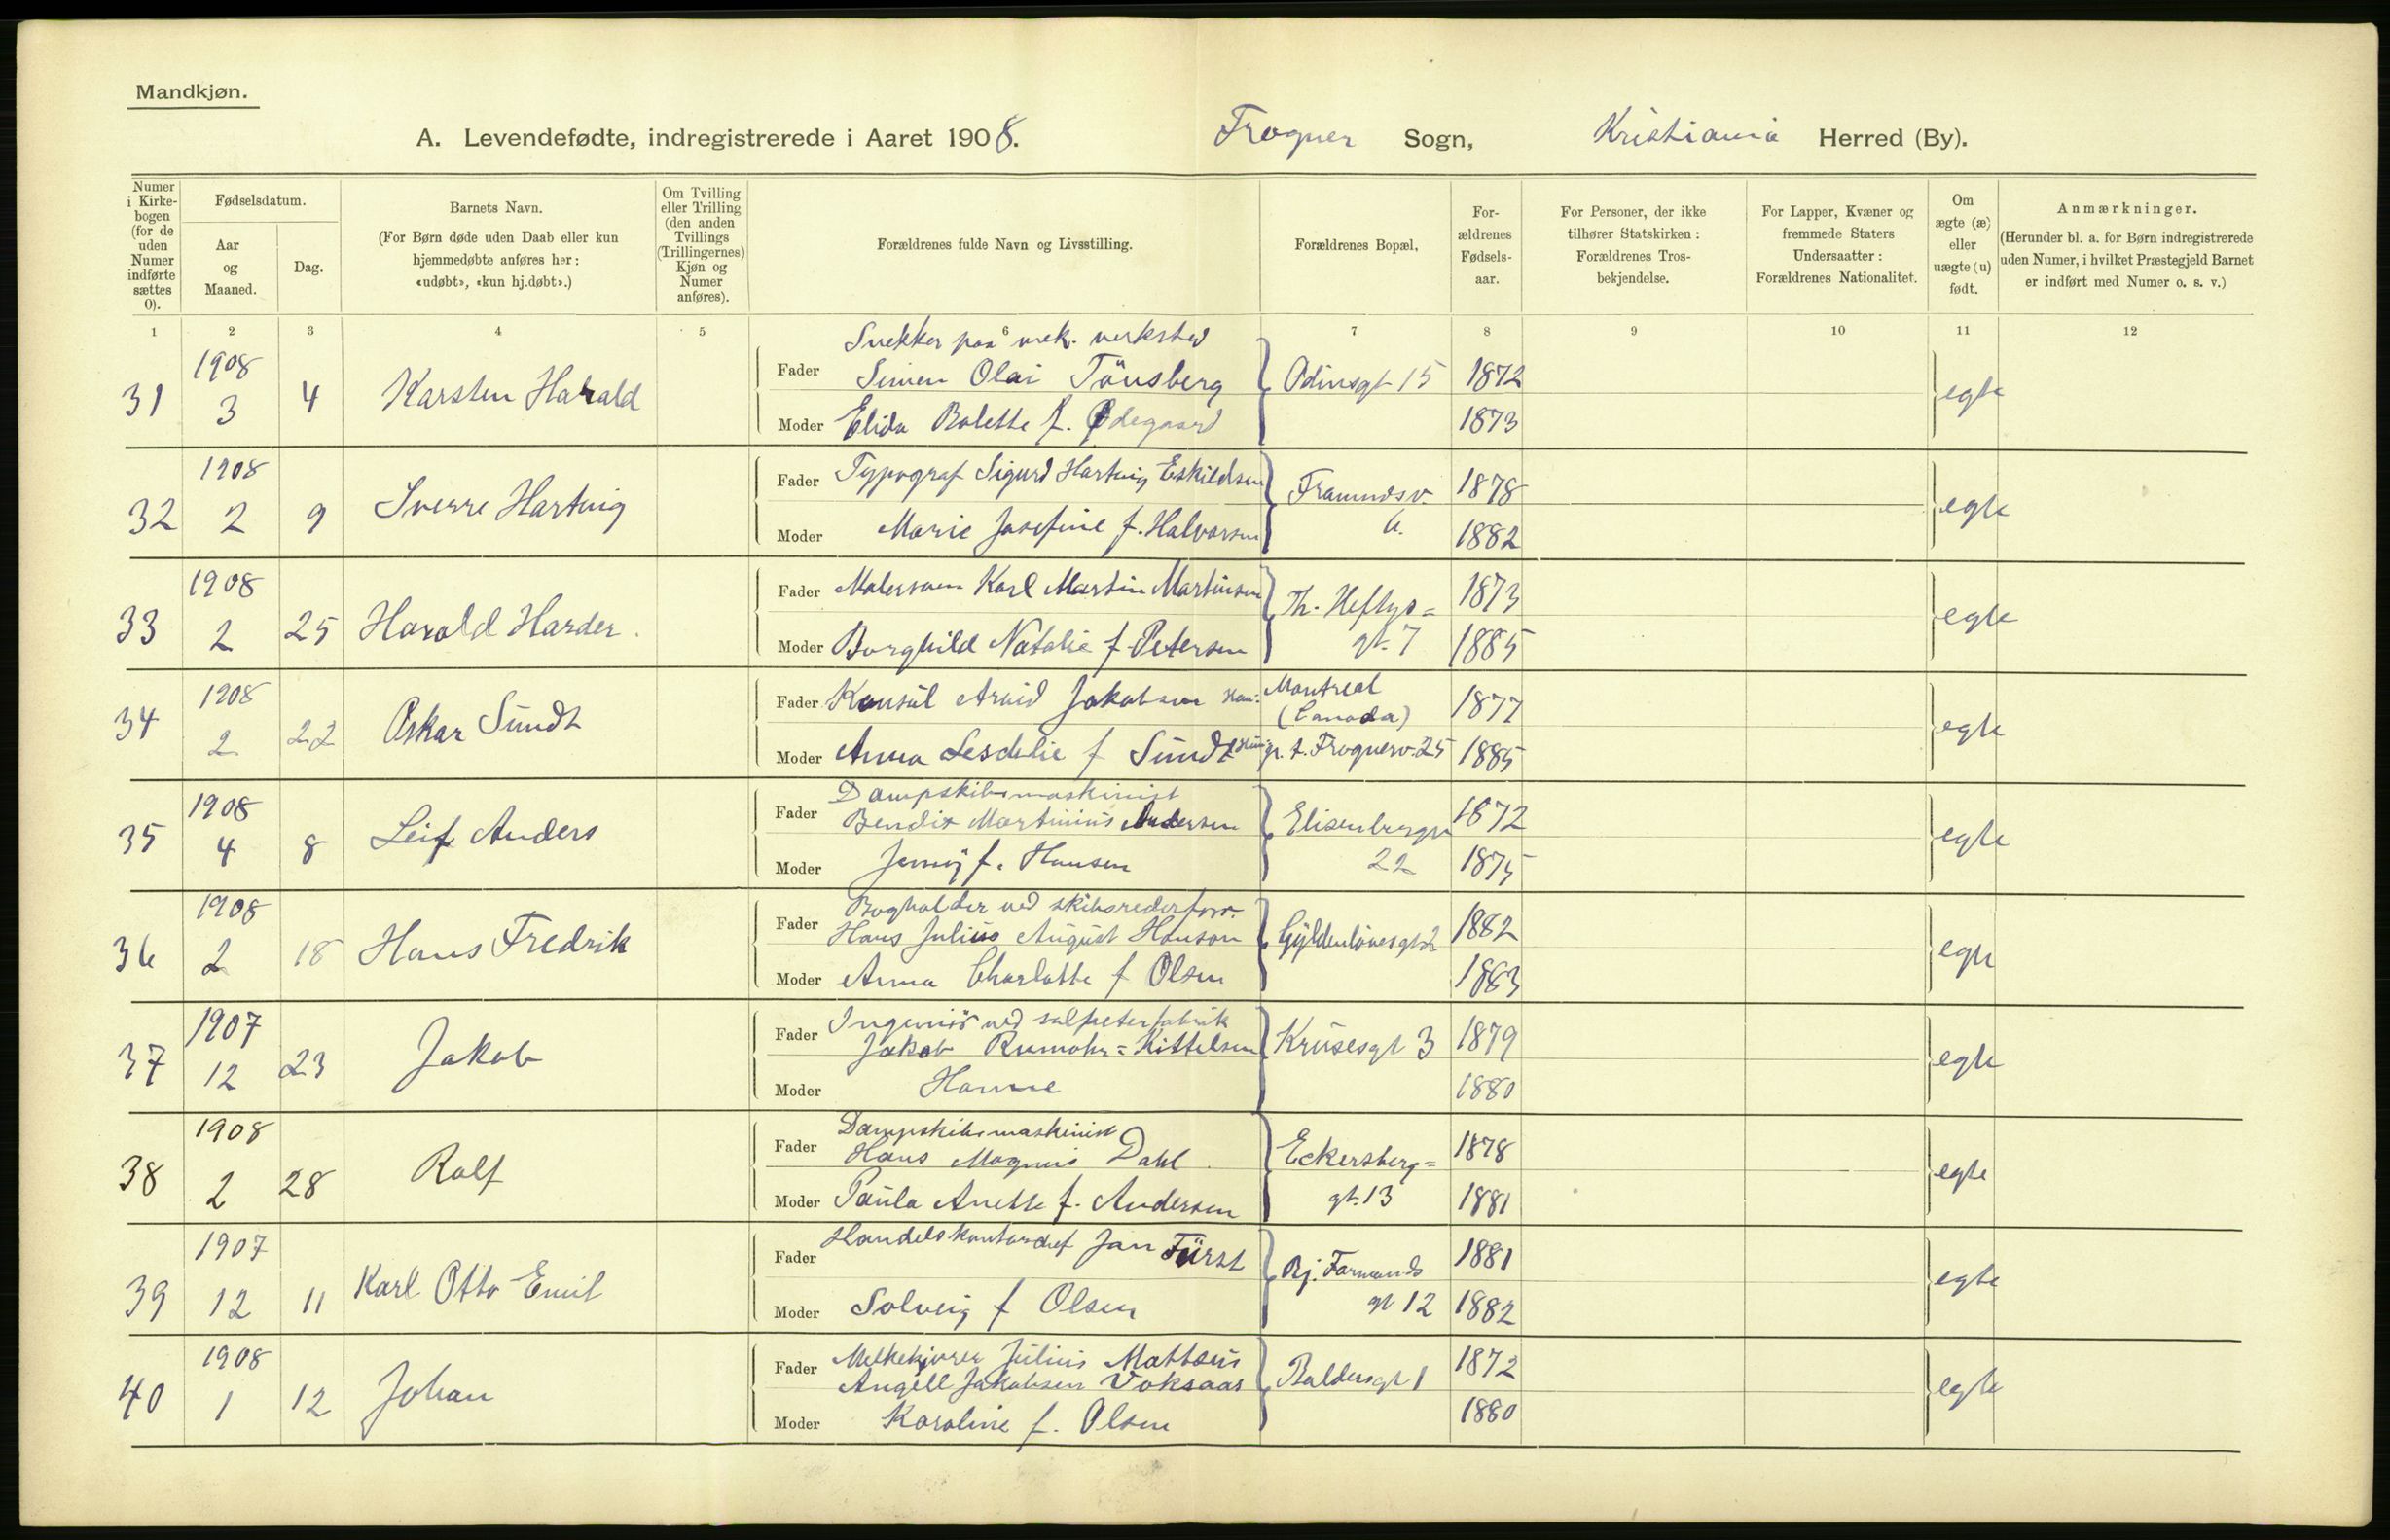 Mandkjøn.
A. Levendefødte, indregistrerede i Aaret 1908. Frogner Sogn, Kristiania Herred (By).
Numer i Kirkebogen (for de uden Numer indførte sættes 0).
Fødselsdatum.
Aar og Maaned.
Dag.
Barnets Navn.
(For Børn døde uden Daab eller kun hjemmedøbte anføres her: «udøbt», «kun hj.døbt».)
Om Tvilling eller Trilling (den anden Tvillings (Trillingernes) Kjøn og Numer anføres).
Forældrenes fulde Navn og Livsstilling.
Forældrenes Bopæl,
Forældrenes Fødselsaar.
For Personer, der ikke tilhører Statskirken: Forældrenes Trosbekjendelse.
For Lapper, Kvæner og fremmede Staters Undersaatter: Forældrenes Nationalitet.
Om ægte (æ) eller uægte (u) født.
Anmærkninger.
(Herunder bl. a. for Børn indregistrerede uden Numer, i hvilket Præstegjeld Barnet er indført med Numer o. s. v.)
1 2 3 4 5 6 7 8 9 10 11 12
Snekker paa mek. verksted
31 1908 3 4 Karsten Harald Fader Simen Olai Tönsberg Odinsgt 15 1872 egte
Moder Elida Bolette f. Ødegaard 1873
32 1908 2 9 Sverre Hartvig Fader Typograf Sigurd Hartvig Eskildsen 1878 egte
Moder Marie Josefine f. Halvorsen 1882
33 1908 2 25 Harald Harder. Fader Malersvem Karl Martin Martinsen Th. Heftys= 1873 egte
Moder Borghild Natalie f. Petersen gt. 7 1885
34 1908 2 22 Oskar Sundt Fader Konsul Arvid Jakobsen Han: Montreal (Canada) 1877 egte
Moder Anna f Sundt Hun: p. t. Frognerv. 25 1885
35 1908 4 8 Leif Anders Fader Dampskibsmaskinist
Bendix Martinius Andersen Elisenbergv 1872 egte
Moder Jenny f. Hansen 22 1875
36 1908 2 18 Hans Fredrik Fader Bogholder ved
Hans Julius August Hanson Gyldenlövesgt 2 1882 egte
Moder Anna Charlotte f Olsen 1883
37 1907 12 23 Jakob Fader Ingeniör ved salpeterfabrik
Jakob Rumohr=Kittelsen Krusesgt 3 1879 egte
Moder Hanne 1880
38 1908 2 28 Rolf Fader Dampskibsmaskinist
Hans Magnus Dahl. Eckersberg= 1878 egte
Moder Paula Anette f. Andersen gt. 13 1881
39 1907 12 11 Karl Otto Emil Fader Handelskontorchef Jan Fürst Bj. Farmands 1881 egte
Moder Solveig f Olsen gt 12 1882
40 1908 1 12 Johan Fader Melkekjører Julius Mattæus
Angell Jakobsen Voksaas Baldersgt 1 1872 egte
Moder Karoline f. Olsen 1880